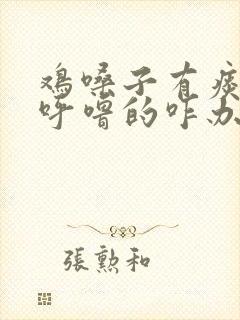 鸡嗓子有痰
呼噜的咋办
張勲和